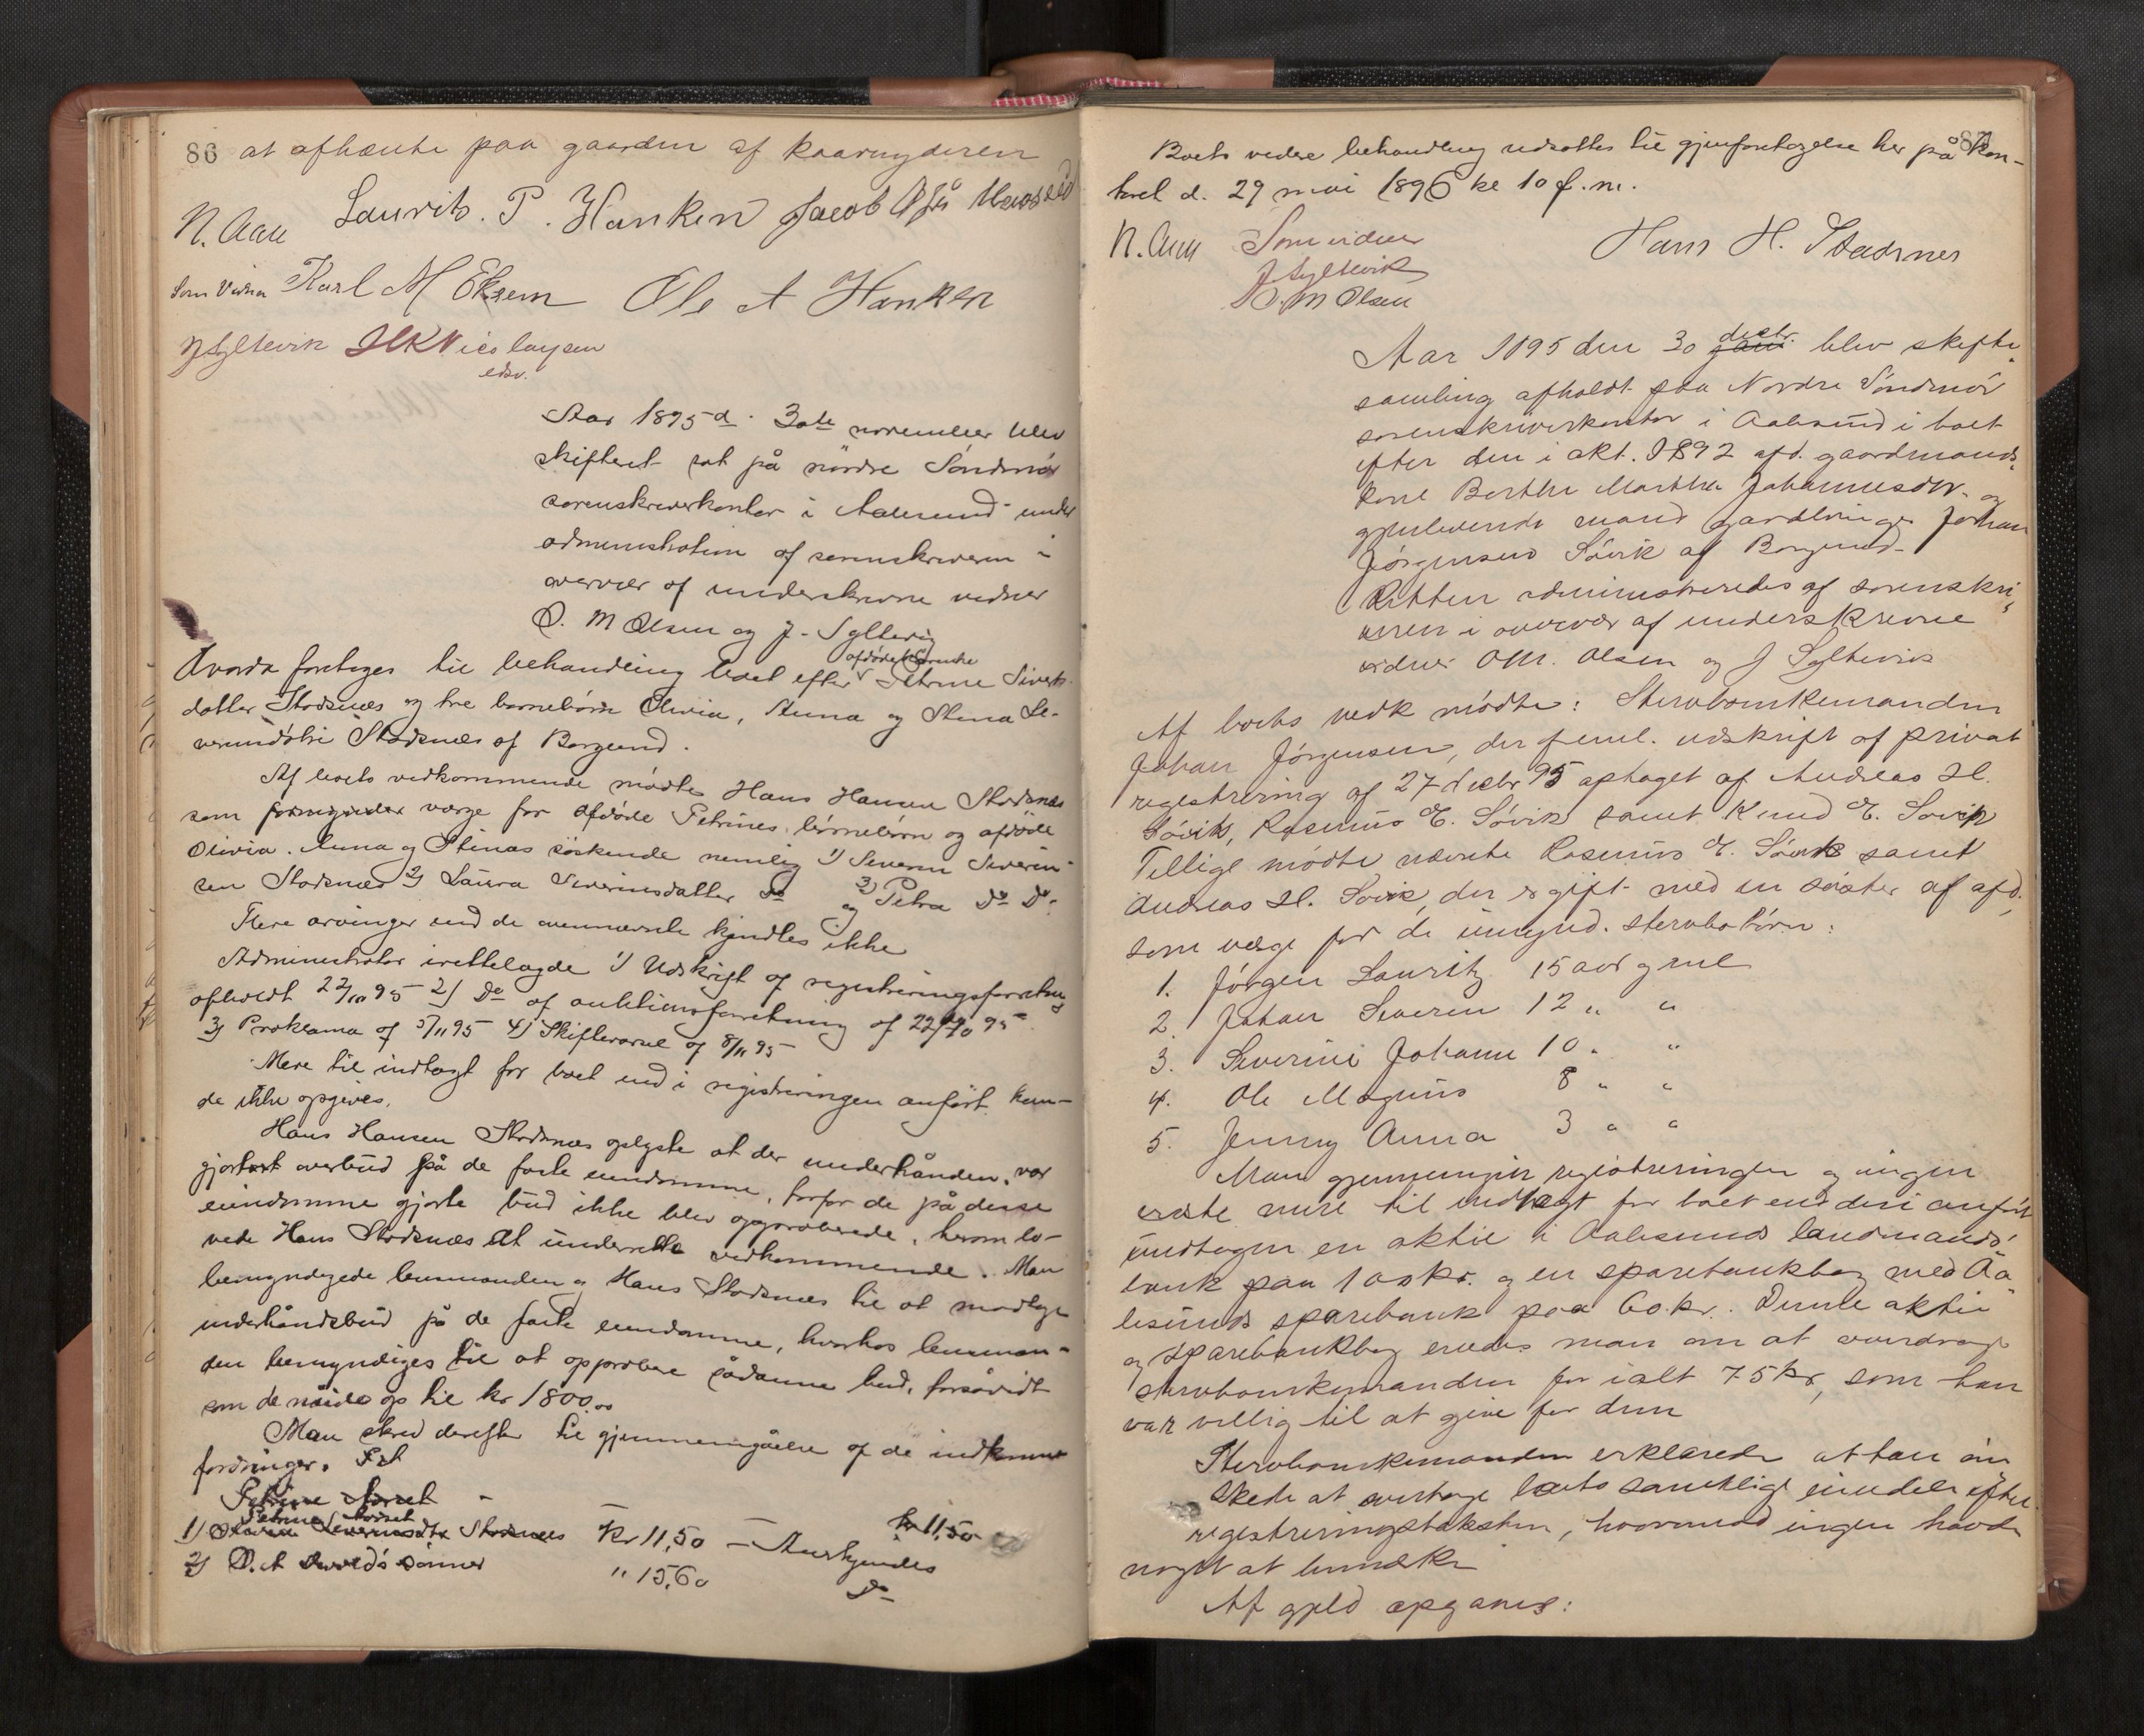 86 at afhente paa gaarden af kaarnyderen
Laurits. P. Hanken Jacob
N. Aau
som vidne Karl M Eksem Ole A Hanken
J Syltevik Nicolaysen
edsv.
Aar 1895 d. 30te november blev
skifteret sat på nordre Söndmör
sorenskriverkontor i Aalesund under
administration af sorenskriveren i
overvær af underskrevne vidner
O. M Olsen og J. Syltevig
Hvorda foretoges til behandling boet efter afdøde Petrine Siverts-
datter Stadsnæs og tre barnebörn Olivia, Anna og Stina Se-
verinsdötre Stadsnæs af Borgund.
Af boets vedkommende mødte Hans Hansen Stadsnæs
som formynder værge for afdøde Petrines börnebörn og afdöde
Olivia. Anna og Stinas söskende nemlig 1) Severin Severin-
sen Stadsnæs 2) Laura Severinsdatter Do og 3) Petra Do Do.
Flere arvinger end de ovennævnte kjendtes ikke
Administrator irettelagde 1) Udskrift af registreringsforretning
afholdt 22/10 95 2) Do af auktionsforretning af 22/10 95
3) Proklama af 5/11 95 4) Skiftevarsel af 8/11 95
Mere til indtægt for boet end i registreringen anført kun-
de ikke opgives.
Hans Hansen Stadsnæs oplyste at der underhånden var
gjort overbud på de faste eiendomme, hvorfor de på disse
eiendomme gjorte bud ikke blev approberede, herom lo-
vede Hans Stadsnæs at underrette vedkommende. Man
bemyndigede lensmanden og Hans Stadsnæs til at modtage
underhåndsbud på de faste eiendomme, hvorhos lensman-
den bemyndiges til at approbere sådanne bud, forsåvidt
som de nåede op til kr 1800.00
Man skred derefter til gjennemgåelse af de indkomne
fordringer.
Petrine
1) Severinsdtr Stadsnæs Kr 11,50 — Anerkjendes kr 11,50
2) O. A Devolds sønner " 15,60 Do
87
Boets videre behandling udsattes til gjenforetagelse her på kon-
toret d. 29 mai 1896 kl 10 f.m.
N. Aau Som vidner Hans H. Stadsnes
J Syltevik
O. M Olsen
Aar 1895 den 30 decbr. blev skifte
samling afholdt paa Nordre Söndmör
sorenskriverkontor i Aalesund i boet
efter den i okt. 1892 afd. gaardmands
kone Berthe Marthe Johannesdtr. og
gjenlevende mand gaardbruger Johan
Jörgensen Sövik af Borgund.
Retten administreredes af sorenskri
veren i overvær af underskrevne
vidner O M. Olsen og J Syltevik
Af boets vedk mödte: Stervbomkemanden
Johan Jörgensen, der freml. udskrift af privat
registrering af 27 decbr 95 optaget af Andreas H.
Sövik, Rasmus E. Sövik samt Knud E. Sövik
Tillige mödte nævnte Rasmus E. Sövik samt
Andreas H. Sövik, der er gift med en söster af afd.
som værge for de umynd. stervbobörn:
1. Jörgen Lauritz 15 aar gml
2. Johan Severin 12 " "
3. Severine Johanne 10 " "
4. Ole Magnus 8 " "
5. Jenny Anna 3 " "
Man gjennemgik registreringen og ingen
vidste mere til indtægt for boet end deri anfört
undtagen en aktie i Aalesunds landmands-
bank paa 100 kr. og en sparebankbog med Aa-
lesunds sparebank paa 60 kr. Denne aktie
og sparebankbog enedes man om at overdrage
stervbomkemanden for ialt 75 kr, som han
var villig til at give for dem
Stervbomkemanden erklærede at han ön
skede at overtage boets samtlige eiendele efter
registreringstaksten, hvorimod ingen havde
noget at bemærke
Af gjeld opgaves: